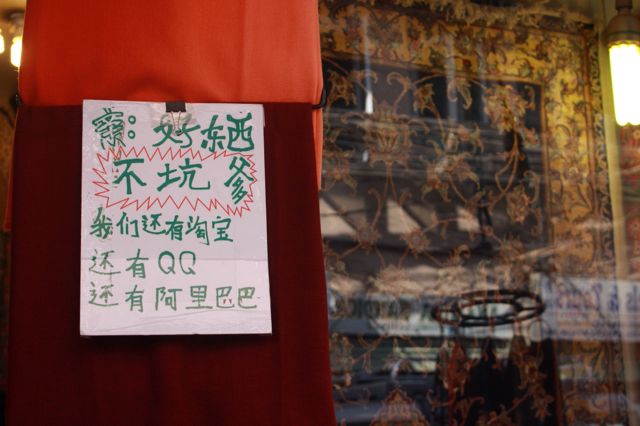 亲：好东西
不坑爹
我们还有淘宝
还有QQ
还有阿里巴巴